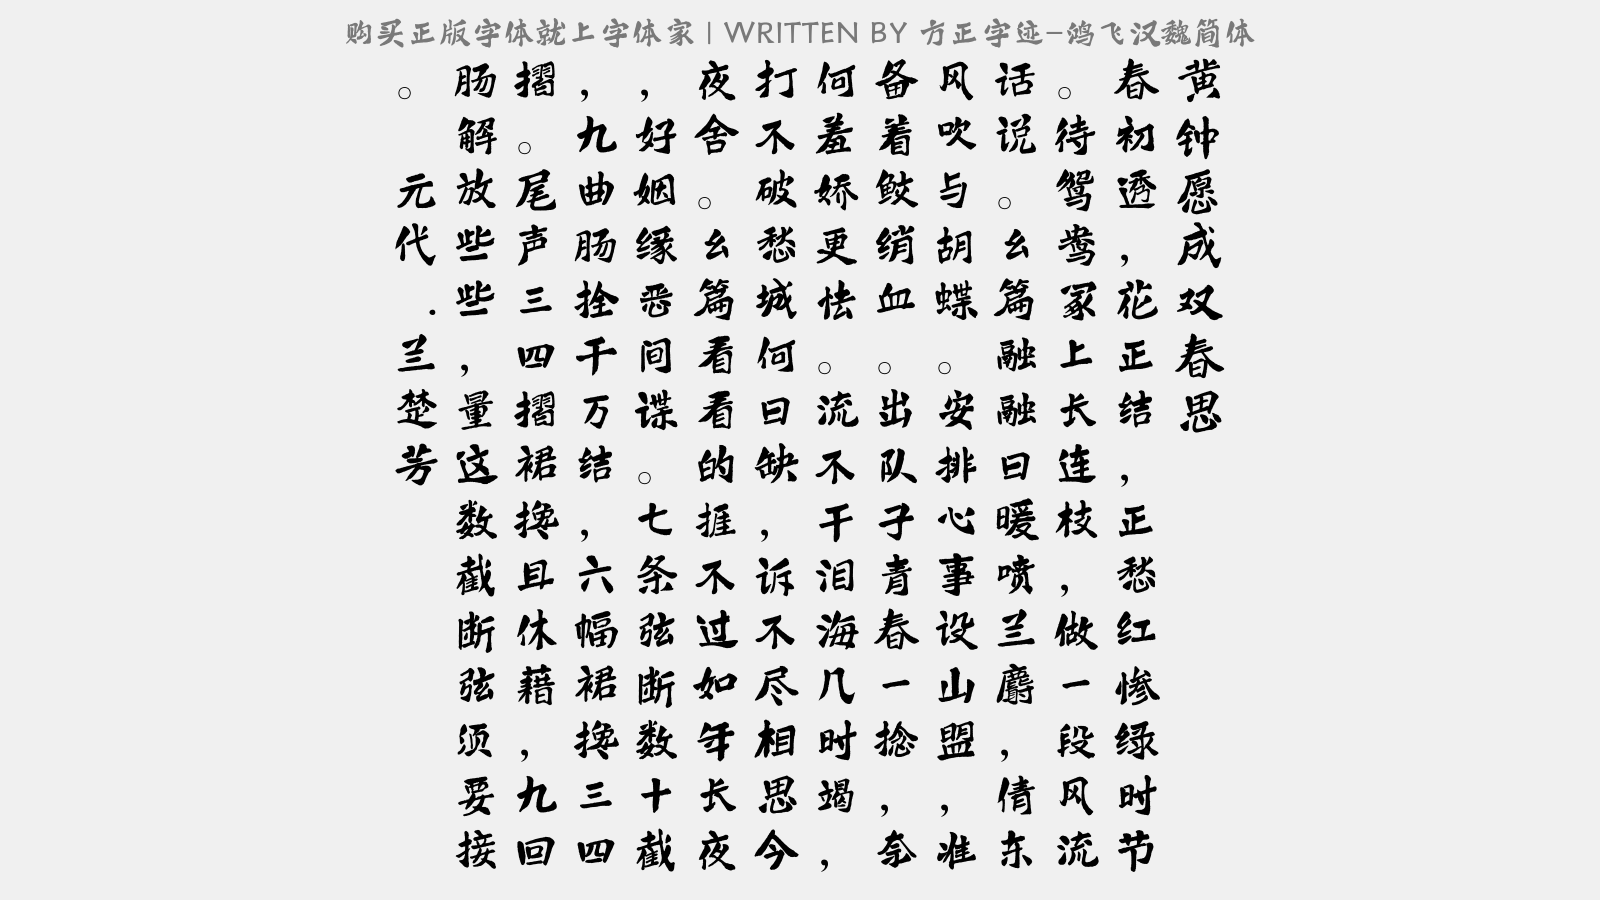 购买正版字体就上字体家 | WRITTEN BY 方正字迹-鸿飞汉魏简体
黄钟愿成双春思
春初透，花正结，正愁红惨绿时节
。待鸳鸯冢上长连枝，做一段风流
话说。幺篇融融日暖喷兰麝，倩东
风吹与胡蝶。安排心事设山盟，准
备着鲛绡血。出队子青春一捻，奈
何羞娇更怯。流不干泪海几时竭，
打不破愁城何日缺，诉不尽相思今
夜舍。幺篇看看的捱不过如年长夜
，好姻缘恶间谍。七条弦断数十截
，九曲肠拴千万结，六幅裙搀三四
摺。尾声三四摺裙搀且休藉，九回
肠解放些些，量这数截断弦须要接
。 元代.兰楚芳